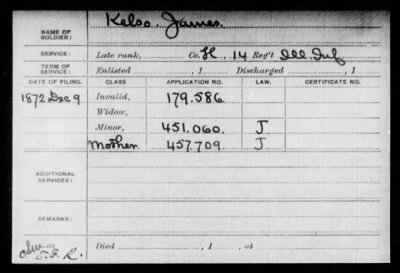 NAME OF SOLDIER: Kelso, James.
SERVICE: Late rank, Co. H, 14 Reg't Ill. Inf
TERM OF SERVICE: Enlisted , 1 Discharged , 1
DATE OF FILING. CLASS APPLICATION NO. LAW. CERTIFICATE NO.
1872 Dec 9 Invalid, 179.586.
Widow,
Minor, 451.060. J
Mother 457.709. J
ADDITIONAL SERVICES:
REMARKS:
Died , 1 , at